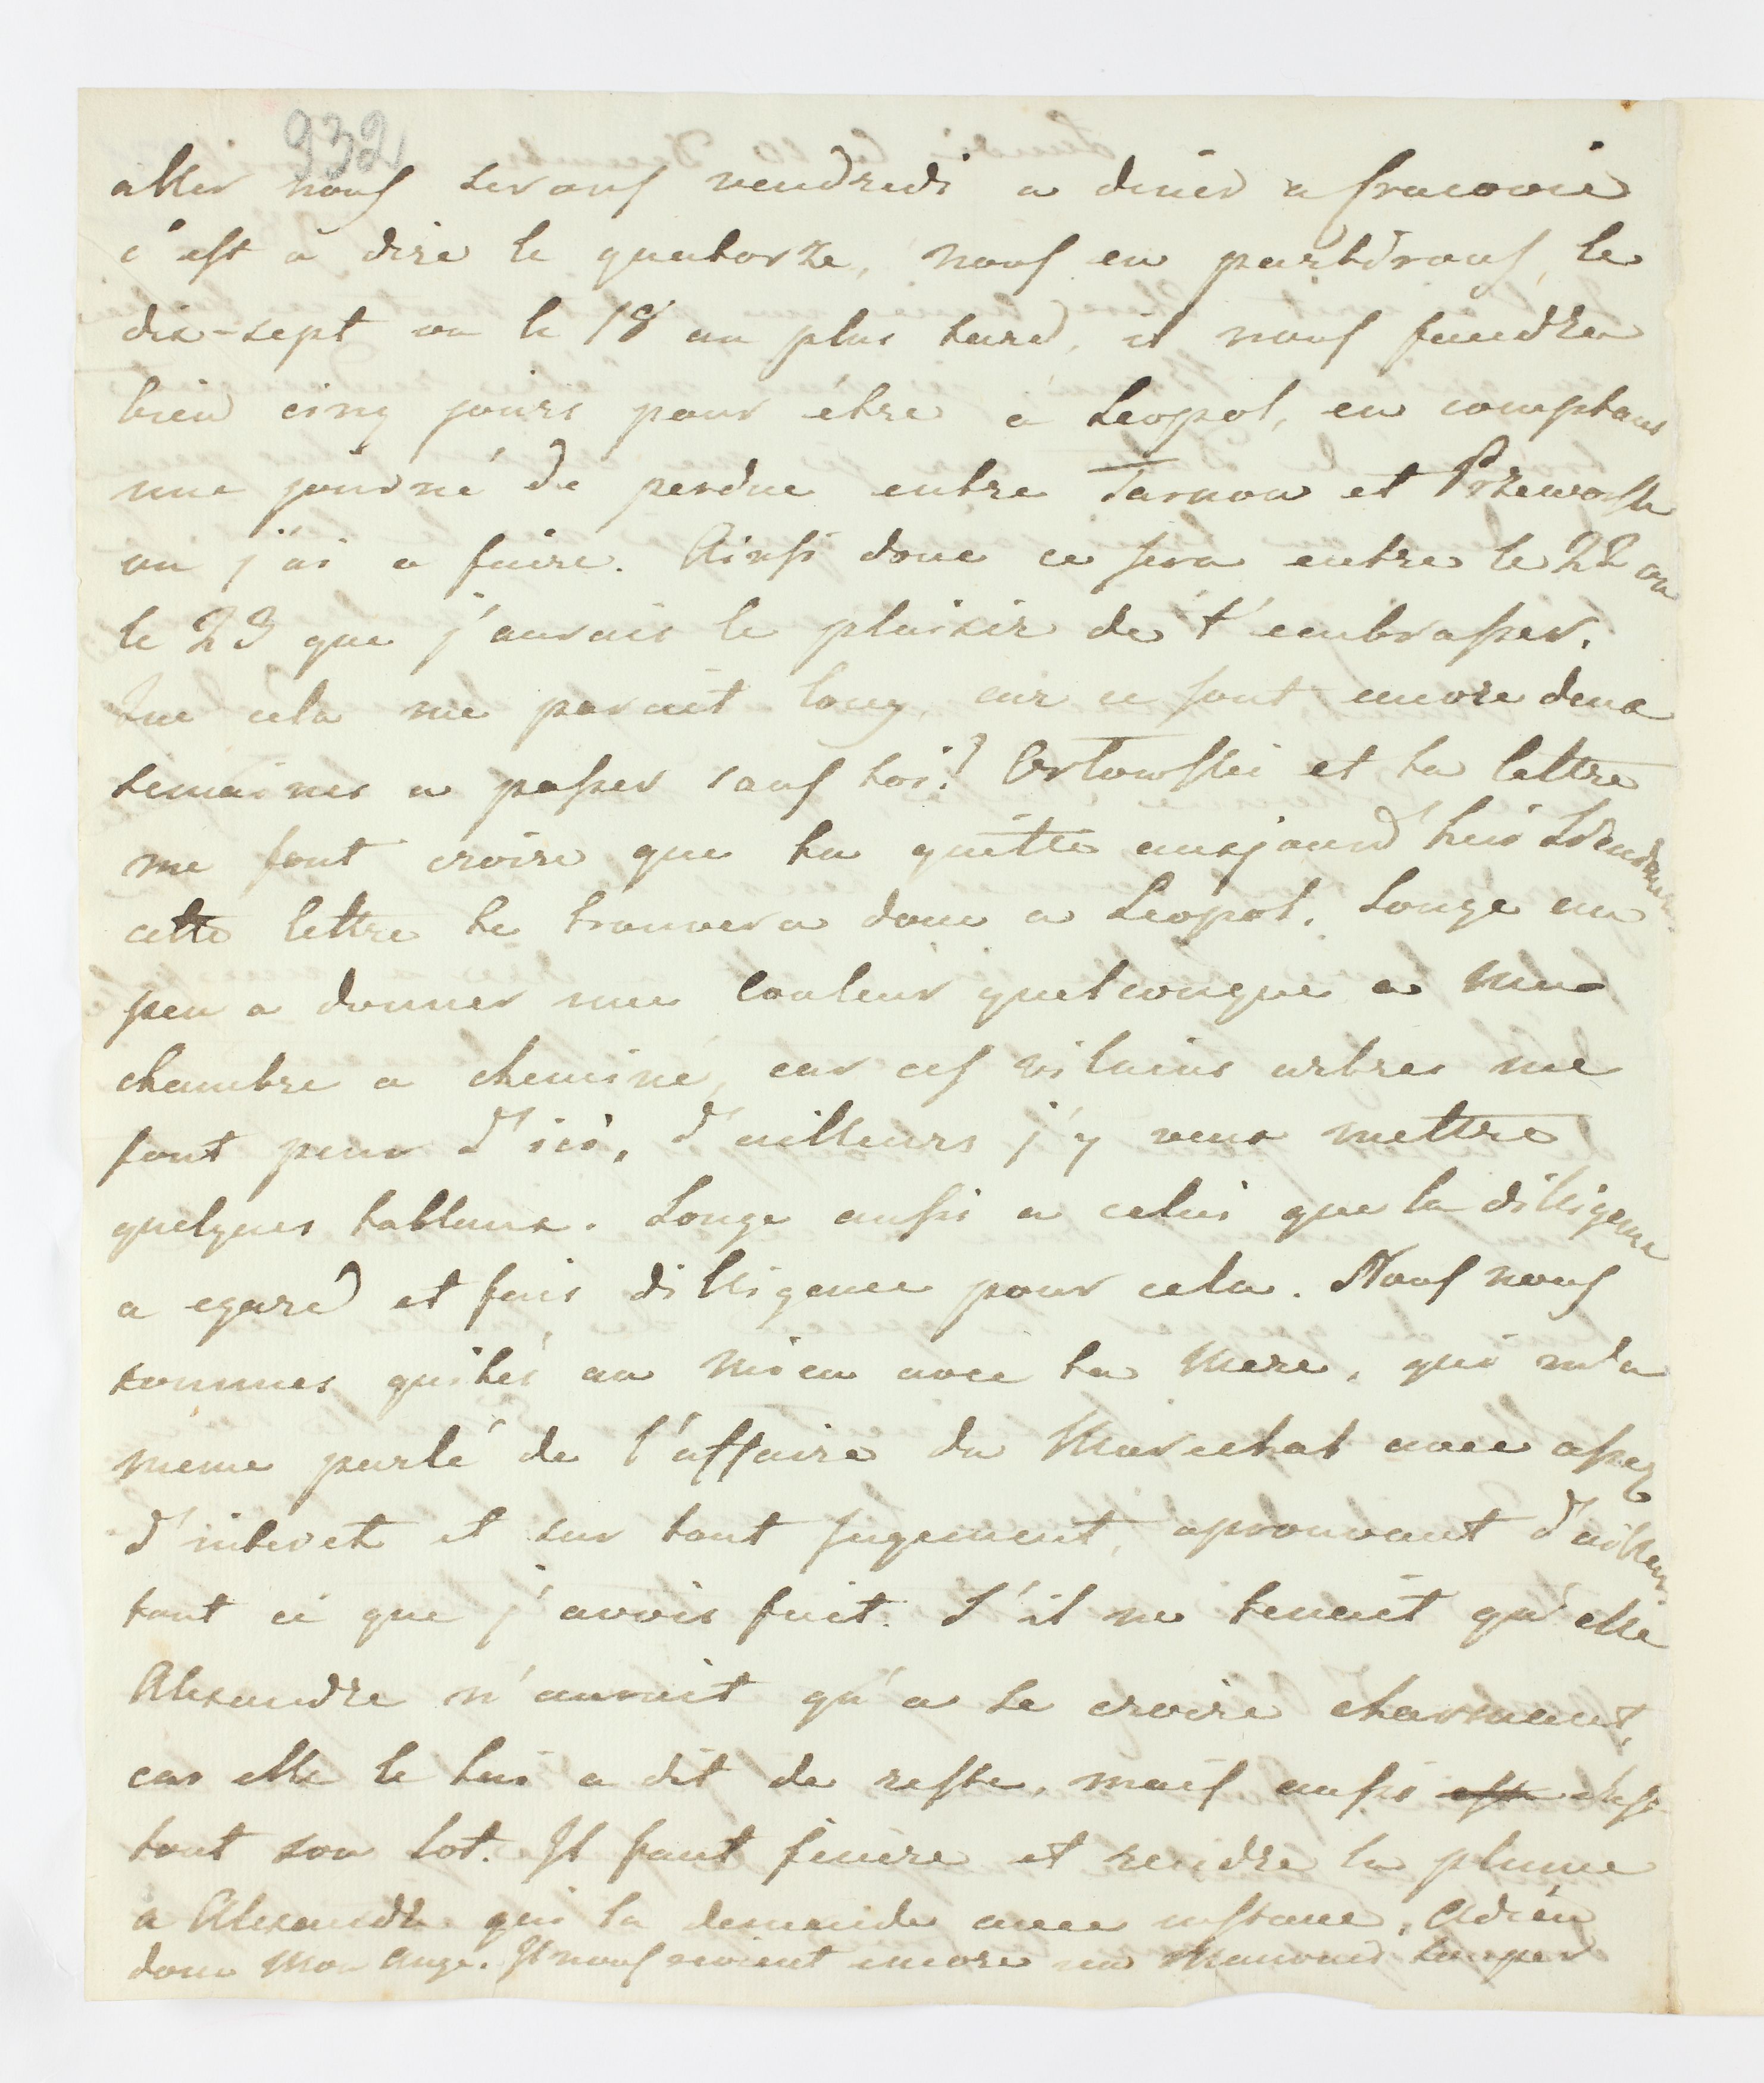 932
aller nous serons vendredi a diner a Cracovie
c'est à dire le quatorze, nous en partirons, le
dix-sept ou le 18 au plus tard, il nous faudra
bien cinq jours pour étre à Leopol, en comptans
une journé de perdue entre Tarnow et Przeworsk
ou j'ai a faire. Ainsi donc ce sera entre le 22 ou
le 23 que j'aurais le plaisir de t'embrasser.
Que cela me parait long, car ce sont encore deux
semaines a passer sans toi! Orlowski et ta lettre
me font croire que tu quitte aujourd'hui
cette lettre te trouvera donc a Leopol. Songe un
peu a donner une couleur quelconque a ma
chambre a cheminé, car ces vilains arbres me
font peur d'ici, d'ailleurs j'y veux mettre
quelques tableaux. Songe aussi a celui que la dilligence
a egaré et fais dilligence pour cela. Nous nous
sommes quités au mieu avec ta Mere, qui m'a
meme parlé de l'affaire du Marechal avec assez
d'interet et sur tout jugement, aprouvant d'ailleurs
tout ce que j'avois fait. S'il ne tenait qu'elle
Alexandre n'aurait qu'a se croire charmant,
car elle le lui a dit de reste, mais aussi
tout son lot. Il faut finire et rendre la plume
a Alexandre qui la demande avec instance, Adieu
donc Mon Ange. Il nous revient encore un Mauvais souper